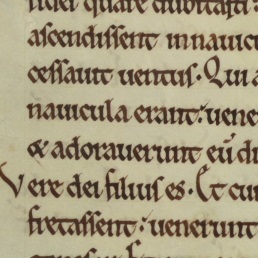 fidei quare dubitasti
ascendissent in nauicu
cessauit uentus. Qui a
nauicula erant: uene
& adorauerunt eū d
Vere dei filius es. Et cu
fretassent: uenerunt